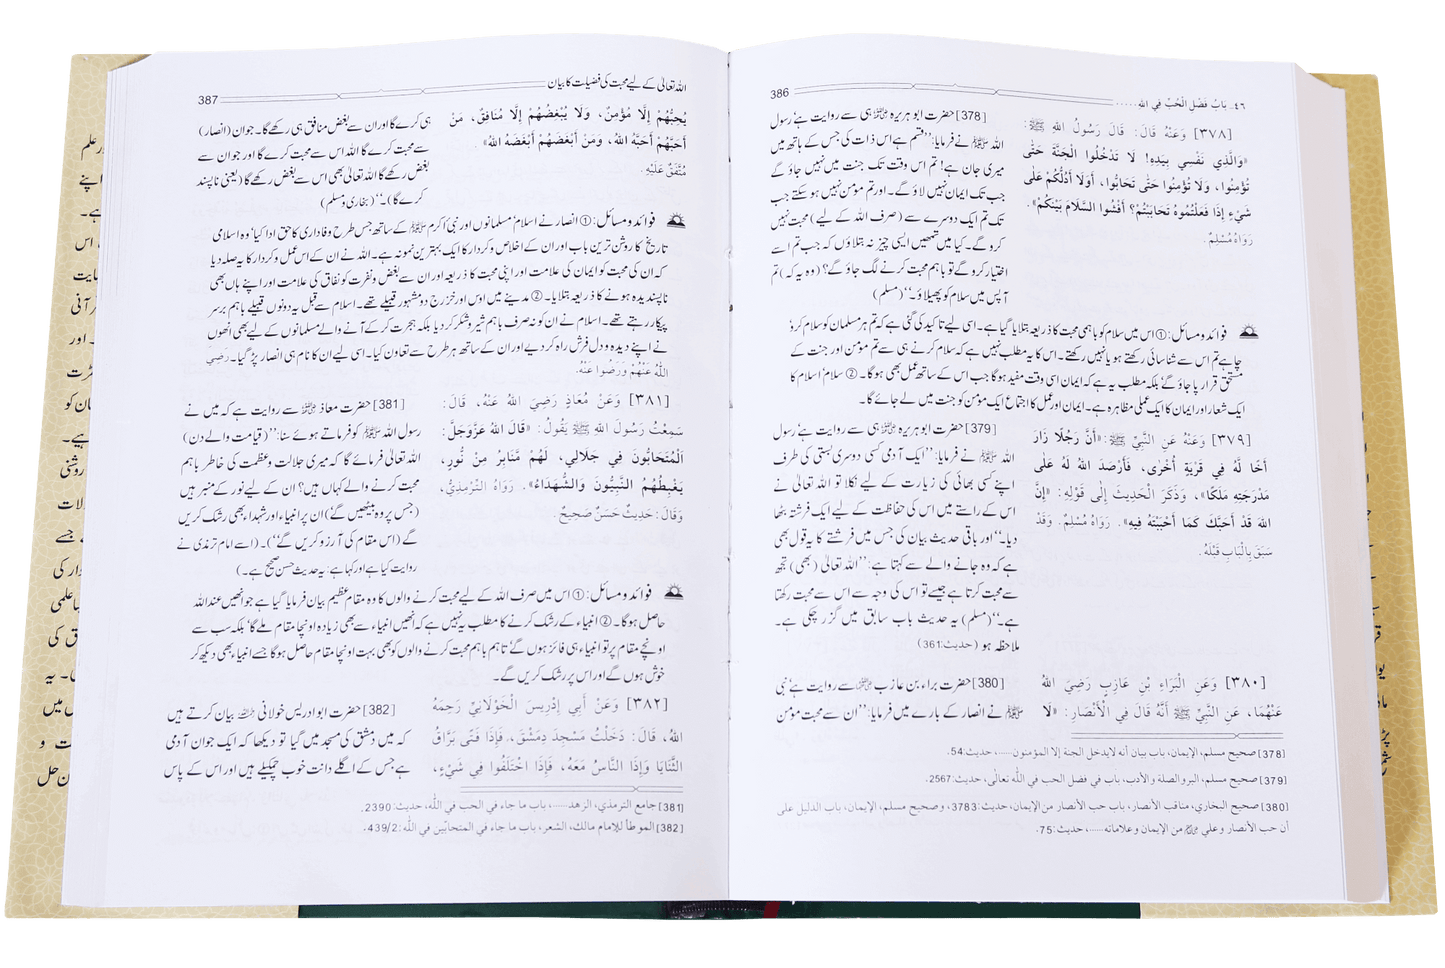 386
٤٦. بَابُ فَضْلِ الْحُبِّ فِي اللّٰهِ .....
[٣٧٨] وَعَنْهُ قَالَ: قَالَ رَسُولُ اللهِ ﷺ:
«وَالَّذِي نَفْسِي بِيَدِهِ! لَا تَدْخُلُوا الْجَنَّةَ حَتَّى
تُؤْمِنُوا، وَلَا تُؤْمِنُوا حَتَّى تَحَابُّوا، أَوَلَا أَدُلُّكُمْ عَلَى
شَيْءٍ إِذَا فَعَلْتُمُوهُ تَحَابَبْتُمْ؟ أَفْشُوا السَّلَامَ بَيْنَكُمْ».
رَوَاهُ مُسْلِمٌ.
[378] حضرت ابوہریرہ ؓ ہی سے روایت ہے رسول
اللہ ﷺ نے فرمایا: ”قسم ہے اس ذات کی جس کے ہاتھ میں
میری جان ہے! تم اس وقت تک جنت میں نہیں جاؤ گے
جب تک ایمان نہیں لاؤ گے۔ اور تم مومن نہیں ہو سکتے جب
تک تم ایک دوسرے سے (صرف اللہ کے لیے) محبت نہیں
کرو گے۔ کیا میں تمھیں ایسی چیز نہ بتلاؤں کہ جب تم اسے
اختیار کرو گے تو باہم محبت کرنے لگ جاؤ گے؟ (وہ یہ کہ) تم
آپس میں سلام کو پھیلاؤ۔“ (مسلم)
فوائد و مسائل: ① اس میں سلام کو باہمی محبت کا ذریعہ بتلایا گیا ہے۔ اسی لیے تاکید کی گئی ہے کہ تم ہر مسلمان کو سلام کرو
چاہے تم اس سے شناسائی رکھتے ہو یا نہیں رکھتے۔ اس کا یہ مطلب نہیں ہے کہ سلام کرنے ہی سے تم مومن اور جنت کے
مستحق قرار پا جاؤ گے بلکہ مطلب یہ ہے کہ ایمان اسی وقت مفید ہوگا جب اس کے ساتھ عمل بھی ہوگا۔ ② سلام اسلام کا
ایک شعار اور ایمان کا ایک عملی مظاہرہ ہے۔ ایمان اور عمل کا اجتماع ایک مومن کو جنت میں لے جائے گا۔
[٣٧٩] وَعَنْهُ عَنِ النَّبِيِّ ﷺ: «أَنَّ رَجُلًا زَارَ
أَخًا لَهُ فِي قَرْيَةٍ أُخْرَى، فَأَرْصَدَ اللهُ لَهُ عَلَى
مَدْرَجَتِهِ مَلَكًا»، وَذَكَرَ الْحَدِيثَ إِلَى قَوْلِهِ: «إِنَّ
اللهَ قَدْ أَحَبَّكَ كَمَا أَحْبَبْتَهُ فِيهِ». رَوَاهُ مُسْلِمٌ. وَقَدْ
سَبَقَ بِالْبَابِ قَبْلَهُ.
[379] حضرت ابوہریرہ ؓ ہی سے روایت ہے رسول
اللہ ﷺ نے فرمایا: ”ایک آدمی کسی دوسری بستی کی طرف
اپنے کسی بھائی کی زیارت کے لیے نکلا تو اللہ تعالیٰ نے
اس کے راستے میں اس کی حفاظت کے لیے ایک فرشتہ بٹھا
دیا۔“ اور باقی حدیث بیان کی جس میں فرشتے کا یہ قول بھی
ہے کہ وہ جانے والے سے کہتا ہے: ”اللہ تعالیٰ (بھی) تجھ
سے محبت کرتا ہے جیسے تو اس کی وجہ سے اس سے محبت رکھتا
ہے۔“ (مسلم) یہ حدیث باب سابق میں گزر چکی ہے۔
ملاحظہ ہو (حدیث:361)
[٣٨٠] وَعَنِ الْبَرَاءِ بْنِ عَازِبٍ رَضِيَ اللهُ
عَنْهُمَا، عَنِ النَّبِيِّ ﷺ أَنَّهُ قَالَ فِي الْأَنْصَارِ: «لَا
[380] حضرت براء بن عازب ؓ سے روایت ہے نبی
ﷺ نے انصار کے بارے میں فرمایا: ”ان سے محبت مومن
[378] صحیح مسلم، الإیمان، باب بیان أنہ لایدخل الجنة إلا المؤمنون......، حدیث:54.
[379] صحیح مسلم، البر والصلة والأدب، باب في فضل الحب في اللّٰہ تعالٰی، حدیث:2567.
[380] صحیح البخاري، مناقب الأنصار، باب حب الأنصار من الإیمان، حدیث:3783، وصحیح مسلم، الإیمان، باب الدلیل علی
أن حب الأنصار وعلي ؓ من الإیمان وعلاماتہ......، حدیث:75.
387
اللہ تعالیٰ کے لیے محبت کی فضیلت کا بیان
يُحِبُّهُمْ إِلَّا مُؤْمِنٌ، وَلَا يُبْغِضُهُمْ إِلَّا مُنَافِقٌ، مَنْ
أَحَبَّهُمْ أَحَبَّهُ اللهُ، وَمَنْ أَبْغَضَهُمْ أَبْغَضَهُ اللهُ».
مُتَّفَقٌ عَلَيْهِ.
ہی کرے گا اور ان سے بغض منافق ہی رکھے گا۔ جو ان (انصار)
سے محبت کرے گا اللہ اس سے محبت کرے گا اور جو ان سے
بغض رکھے گا اللہ تعالیٰ بھی اس سے بغض رکھے گا (یعنی ناپسند
کرے گا)۔“ (بخاری و مسلم)
فوائد و مسائل: ① انصار نے اسلام مسلمانوں اور نبی اکرم ﷺ کے ساتھ جس طرح وفاداری کا حق ادا کیا وہ اسلامی
تاریخ کا روشن ترین باب اور ان کے اخلاص و کردار کا ایک بہترین نمونہ ہے۔ اللہ نے ان کے اس عمل و کردار کا یہ صلہ دیا
کہ ان کی محبت کو ایمان کی علامت اور اپنی محبت کا ذریعہ اور ان سے بغض و نفرت کو نفاق کی علامت اور اپنے ہاں بھی
ناپسندیدہ ہونے کا ذریعہ بتلایا۔ ② مدینے میں اوس اور خزرج دو مشہور قبیلے تھے۔ اسلام سے قبل یہ دونوں قبیلے باہم برسر
پیکار رہتے تھے۔ اسلام نے ان کو نہ صرف باہم شیر و شکر کر دیا بلکہ ہجرت کر کے آنے والے مسلمانوں کے لیے بھی انھوں
نے اپنے دیدہ و دل فرش راہ کر دیے اور ان کے ساتھ ہر طرح سے تعاون کیا۔ اسی لیے ان کا نام ہی انصار پڑ گیا۔ رَضِيَ
اللّٰهُ عَنْهُمْ وَرَضُوا عَنْهُ.
[٣٨١] وَعَنْ مُعَاذٍ رَضِيَ اللهُ عَنْهُ، قَالَ:
سَمِعْتُ رَسُولَ اللهِ ﷺ يَقُولُ: «قَالَ اللهُ عَزَّوَجَلَّ:
اَلْمُتَحَابُّونَ فِي جَلَالِي، لَهُمْ مَنَابِرُ مِنْ نُورٍ،
يَغْبِطُهُمُ النَّبِيُّونَ وَالشُّهَدَاءُ». رَوَاهُ التِّرْمِذِيُّ،
وَقَالَ: حَدِيثٌ حَسَنٌ صَحِيحٌ.
[381] حضرت معاذ ؓ سے روایت ہے کہ میں نے
رسول اللہ ﷺ کو فرماتے ہوئے سنا: ”(قیامت والے دن)
اللہ تعالیٰ فرمائے گا کہ میری جلالت و عظمت کی خاطر باہم
محبت کرنے والے کہاں ہیں؟ ان کے لیے نور کے منبر ہیں
(جس پر وہ بیٹھیں گے) ان پر انبیاء اور شہداء بھی رشک کریں
گے (اس مقام کی آرزو کریں گے)“۔ (اسے امام ترمذی نے
روایت کیا ہے اور کہا ہے: یہ حدیث حسن صحیح ہے۔)
فوائد و مسائل: ① اس میں صرف اللہ کے لیے محبت کرنے والوں کا وہ مقام عظیم بیان فرمایا گیا ہے جو انھیں عند اللہ
حاصل ہوگا۔ ② انبیاء کے رشک کرنے کا مطلب یہ نہیں ہے کہ انھیں انبیاء سے بھی زیادہ اونچا مقام ملے گا بلکہ سب سے
اونچے مقام پر تو انبیاء ہی فائز ہوں گے تاہم باہم محبت کرنے والوں کو بھی بہت اونچا مقام حاصل ہوگا جسے انبیاء بھی دیکھ کر
خوش ہوں گے اور اس پر رشک کریں گے۔
[٣٨٢] وَعَنْ أَبِي إِدْرِيسَ الْخَوْلَانِيِّ رَحِمَهُ
اللهُ، قَالَ: دَخَلْتُ مَسْجِدَ دِمَشْقَ، فَإِذَا فَتًى بَرَّاقُ
الثَّنَايَا وَإِذَا النَّاسُ مَعَهُ، فَإِذَا اخْتَلَفُوا فِي شَيْءٍ،
[382] حضرت ابوادریس خولانی ؒ بیان کرتے ہیں
کہ میں دمشق کی مسجد میں گیا تو دیکھا کہ ایک جوان آدمی
ہے جس کے اگلے دانت خوب چمکیلے ہیں اور اس کے پاس
[381] جامع الترمذي، الزھد......، باب ما جاء في الحب في اللّٰہ، حدیث:2390.
[382] الموطأ للإمام مالک، الشعر، باب ما جاء في المتحابّین في اللّٰہ:439/2.